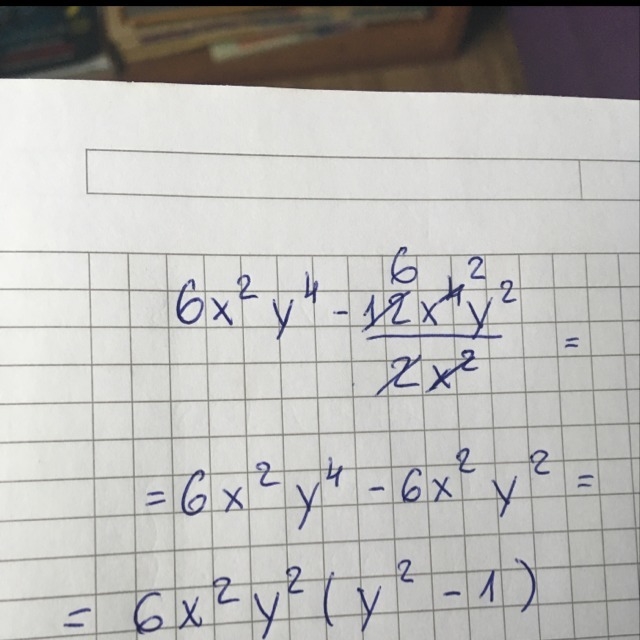 6x² y⁴ - 12x⁴y² / 2x² =
6 2
= 6x² y⁴ - 6x² y² =
= 6x² y² (y² - 1)